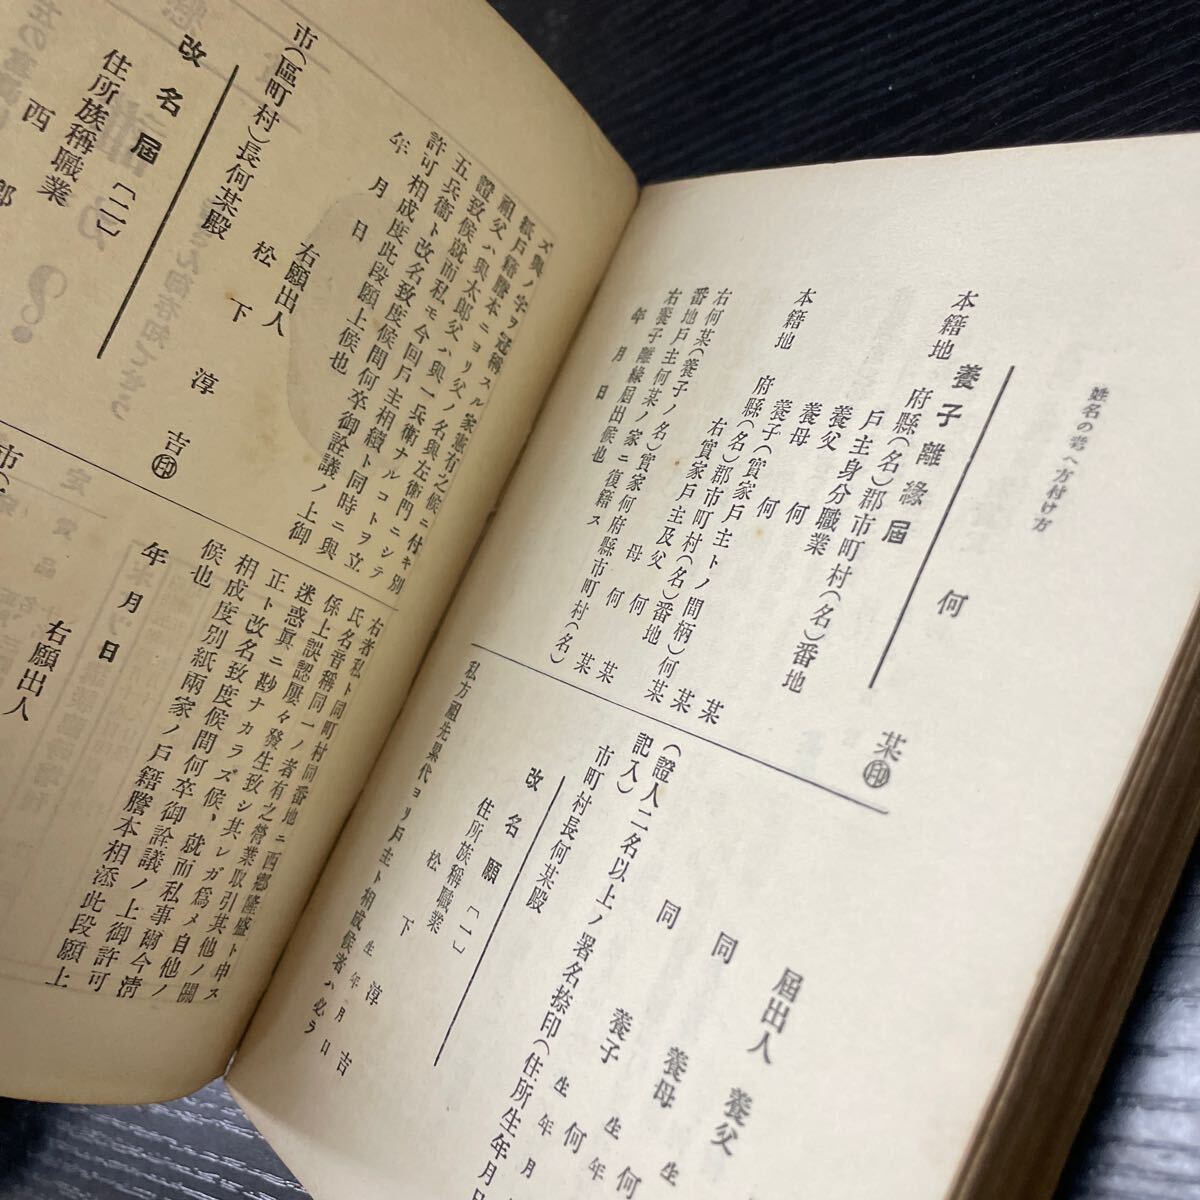 姓名の考へ方付け方
何 某㊞
養子離緣屆
本籍地 府縣(名)郡市町村(名)番地
戶主身分職業
養父 何 某
養母 何 某
本籍地 養子 何 某
府縣(實家戶主トノ間柄)何某
右實家戶主及父 何 某
母 何 某
右何某(養子ノ名)實家何府縣市町村(名)
番地戶主何某ノ家ニ復籍ス
右養子離緣屆出候也
年 月 日
屆出人 養父
同 養母 何
生年
同 養子 何
生年月
(證人二名以上ノ署名捺印(住所生年月日
記入)
市町村長何某殿
改名願〔一〕
住所族稱職業
松下淳吉
生年月日
私方祖先累代ヨリ戶主ト相成候者ハ必ラ
ズ與ノ字ヲ冠稱スル家憲有之候ニ付キ別
紙戶籍謄本ニヨリ父ノ名與左衞門ニシテ
祖父ハ與太郎父ハ與一兵衞ナルコトヲ立
證致候就而私モ今回戶主相續ト同時ニ與
五兵衞ト改名致度候間何卒御詮議ノ上御
許可相成度此段願上候也
年 月 日
右願出人
松下淳吉㊞
市(區町村)長何某殿
改名屆〔二〕
住所族稱職業
西 鄕
右者私ト同町村同番地ニ西鄕隆盛ト申ス
氏名音稱同一ノ者有之營業取引其他ノ關
係上誤認屢々發生致シ其レガ爲メ自他ノ
迷惑眞ニ尠ナカラズ候、就而私事爾今淸
正ト改名致度候間何卒御詮議ノ上御許可
相成度別紙兩家ノ戶籍謄本相添此段願上
候也
年 月 日
右願出人
市(